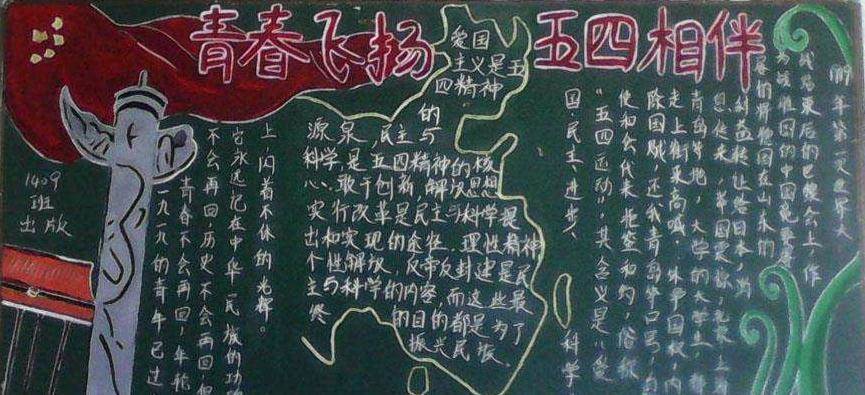 青春飞扬 五四相伴
1409
班
出版
一九一九的青年已过
青春不会再回,年轮
不会再回,历史不会再回但
它永远记在中华民族的功
上,闪着不休的光辉。
爱国
主义是五
四精神
的
源泉,民主与
科学是五四精神的核
心、敢于创新解放思想
实行改革是民主与科学提
出和实现的途径,理性精神
个性解放,反帝反封建是民
主与科学的内容,而这些最
终的目的都是为了
振兴民族。
1919年第一次世界大
战结束后的巴黎会上,作
为战胜国的中国竟要
德国在山东的
利益转让给日本,消
息传来,举国震惊,北京上海
青岛等地,大学的大学生,都
走上街头高喊,外争国权,内
除国贼,还我青岛等口号,
使和会代表拒签和约,俗称
“五四运动”,其含义是“爱
国、民主、进步、科学